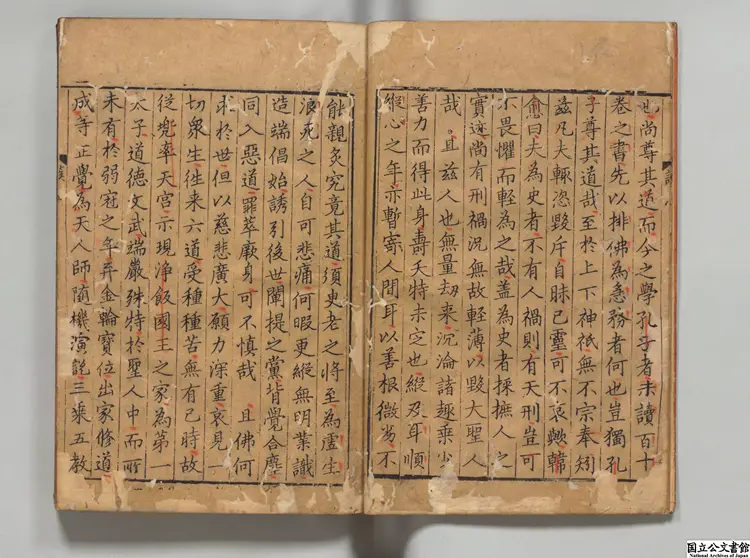 也尚尊其道而今之學孔子者未讀百十
卷之書先以排佛為急務者何也豈獨孔
子尊其道哉至於上下神祇無不宗奉矧
茲凡夫輙恣毀斥自昧已靈可不哀歟韓
愈曰夫為史者不有人禍則有天刑豈可
不畏懼而輕為之哉盖為史者採摭人之
實迹尚有刑禍況無故輕薄以毀大聖人
哉且茲人也無量劫来沉淪諸趣乘少
善力而得此身壽夭特未定也縱及耳順
縱心之年亦暫寄人間耳以善根微劣不
能親炙究竟其道須臾老之將至為虛生
浪死之人自可悲痛何暇更縱無明業識
造端倡始誘引後世闡提之黨背覺合塵
同入惡道罪萃厥身可不慎哉 且佛何
求於世但以慈悲廣大願力深重哀見一
切衆生徃来六道受種種苦無有已時故
從兜率天宮示現淨飯國王之家為第一
太子道德文武端嚴殊特於聖人中而所
未有於弱冠之年弃金輪寶位出家修道
成等正覺為天人師隨機演說三乘五教
国立公文書館
National Archives of Japan